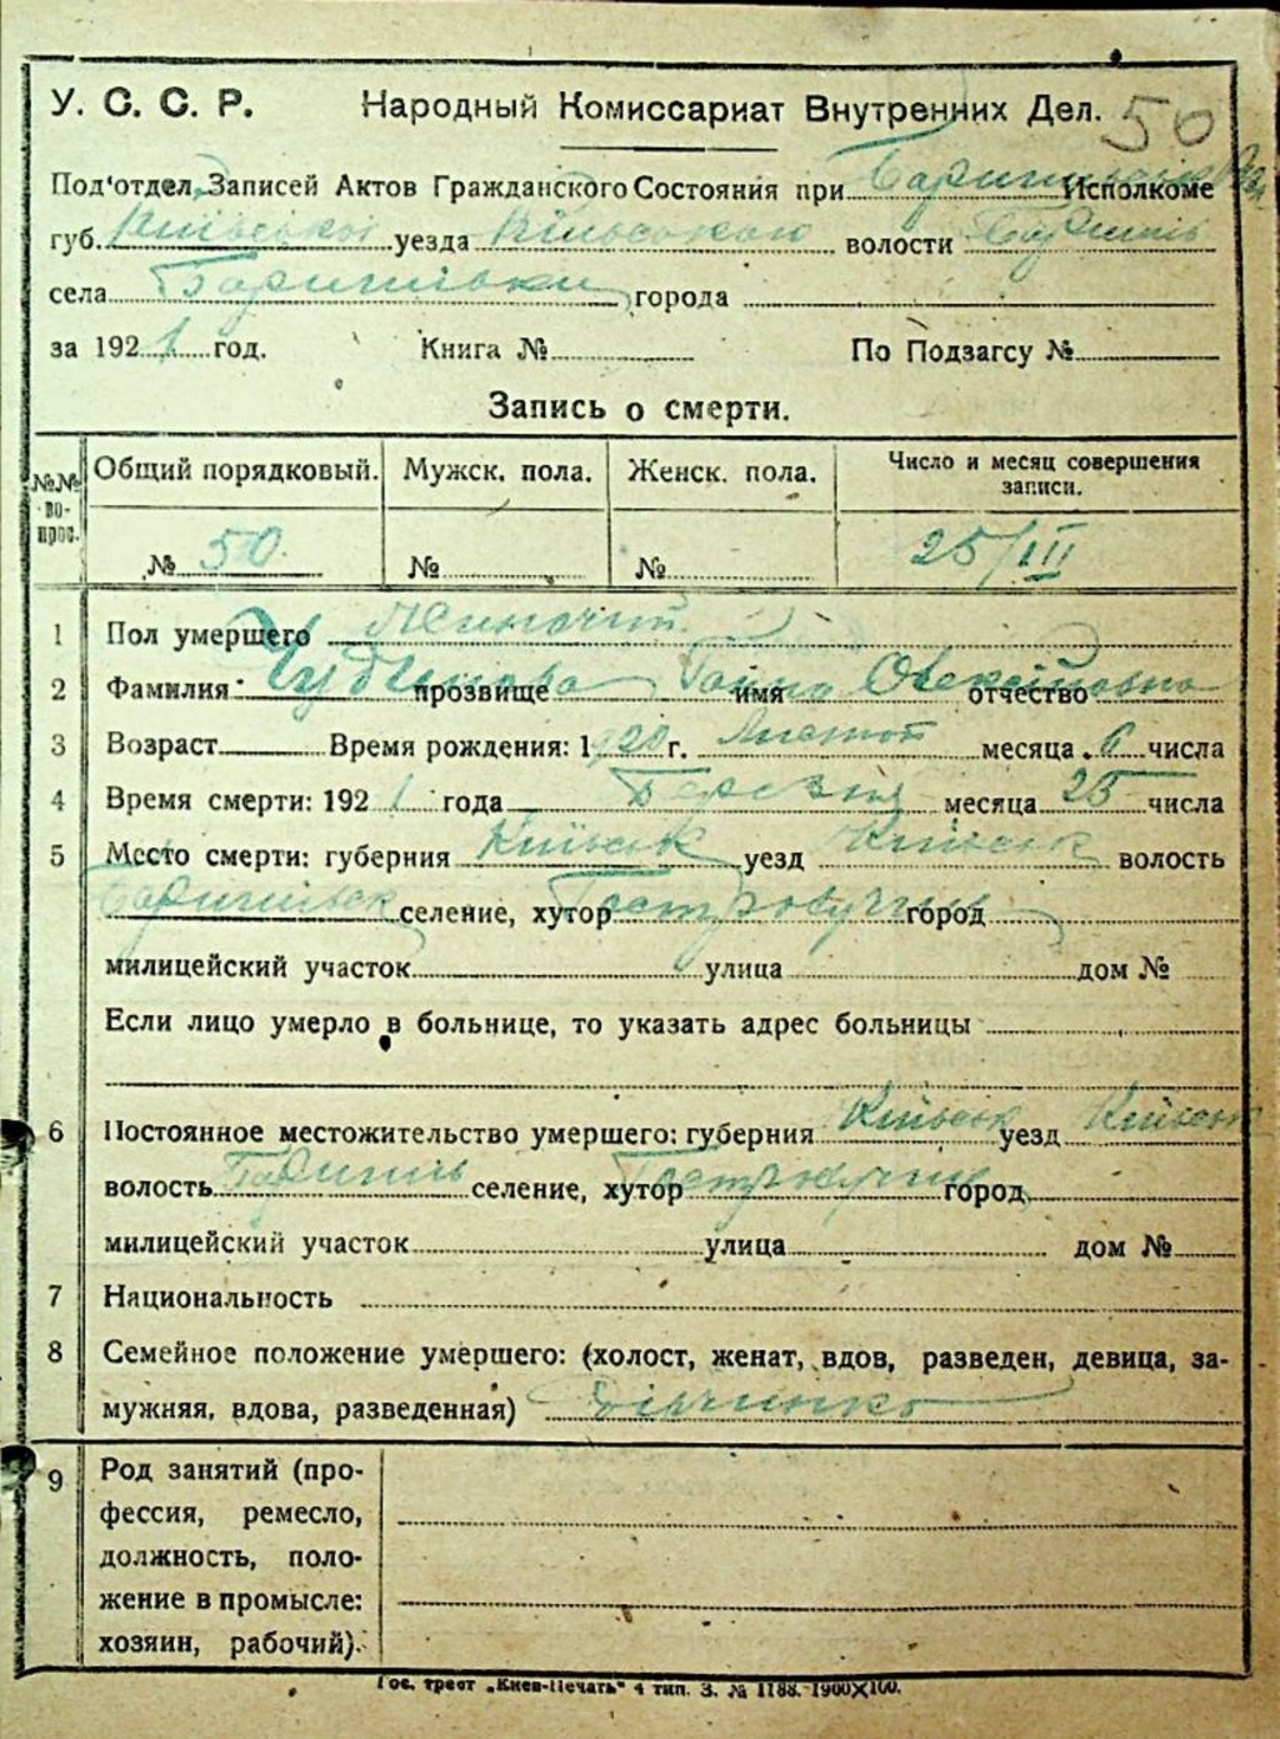 У. С. С. Р. Народный Комиссариат Внутренних Дел. 50
Под'отдел Записей Актов Гражданского Состояния при Исполкоме
губ. Київської уезда волости Баришів
села Баришівки города
за 1921 год. Книга № По Подзагсу №
Запись о смерти.
№№ вопрос. Общий порядковый. Мужск. пола. Женск. пола. Число и месяц совершения записи.
№ 50 № № 25/III
1 Пол умершего Жиночий
2 Фамилия прозвище Ганна имя Олексіївна отчество
3 Возраст Время рождения: 1920 г. Листоп месяца 6 числа
4 Время смерти: 1921 года Березня месяца 25 числа
5 Место смерти: губерния Київськ уезд Київськ волость
Баришівськ селение, хутор город
милицейский участок улица дом №
Если лицо умерло в больнице, то указать адрес больницы
6 Постоянное местожительство умершего: губерния Київськ уезд Київськ
волость Баришів селение, хутор город
милицейский участок улица дом №
7 Национальность
8 Семейное положение умершего: (холост, женат, вдов, разведен, девица, за-
мужняя, вдова, разведенная) дівчинка
9 Род занятий (про-
фессия, ремесло,
должность, поло-
жение в промысле:
хозяин, рабочий).
Гос. трест „Киев-Печать" 4 тип. З. № 1188. 1900×100.